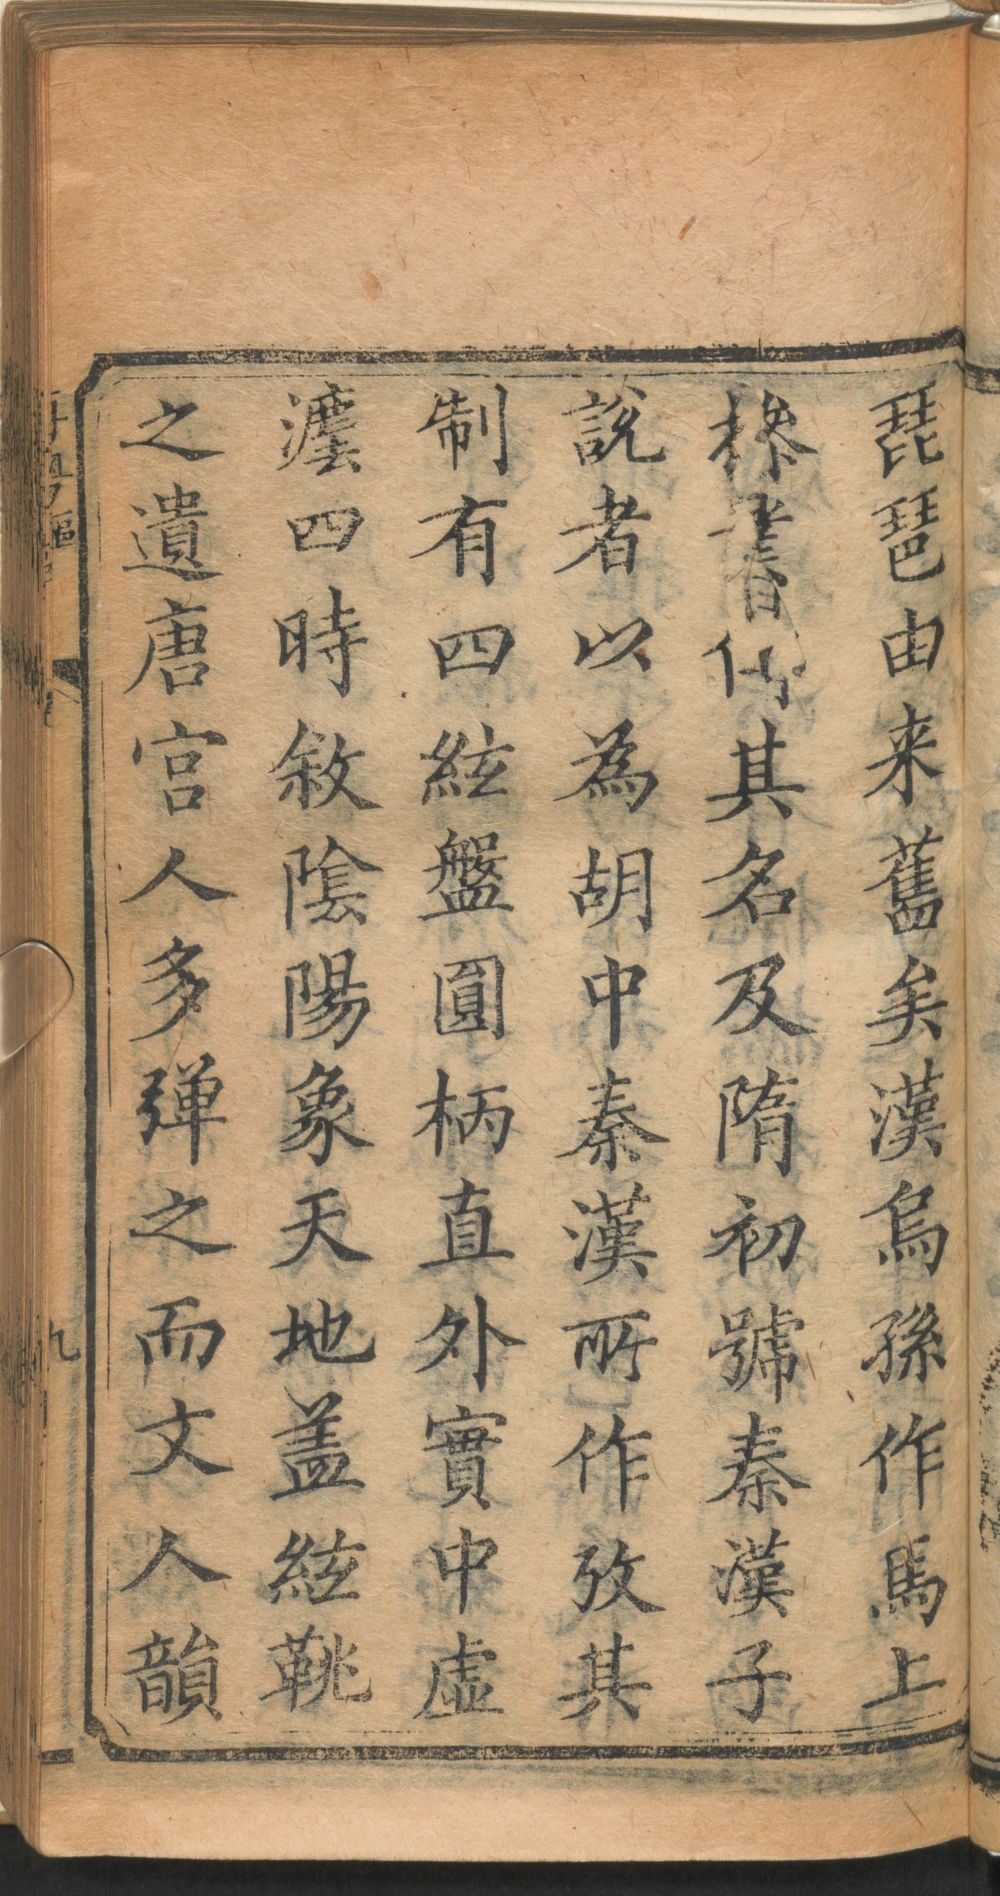 琵琶由来舊矣漢烏孫作馬上
其名及隋初號秦漢子
說者以為胡中秦漢所作攷其
制有四絃盤圓柄直外實中虛
灋四時敘陰陽象天地蓋絃鞉
之遺唐宫人多彈之而文人韻
九